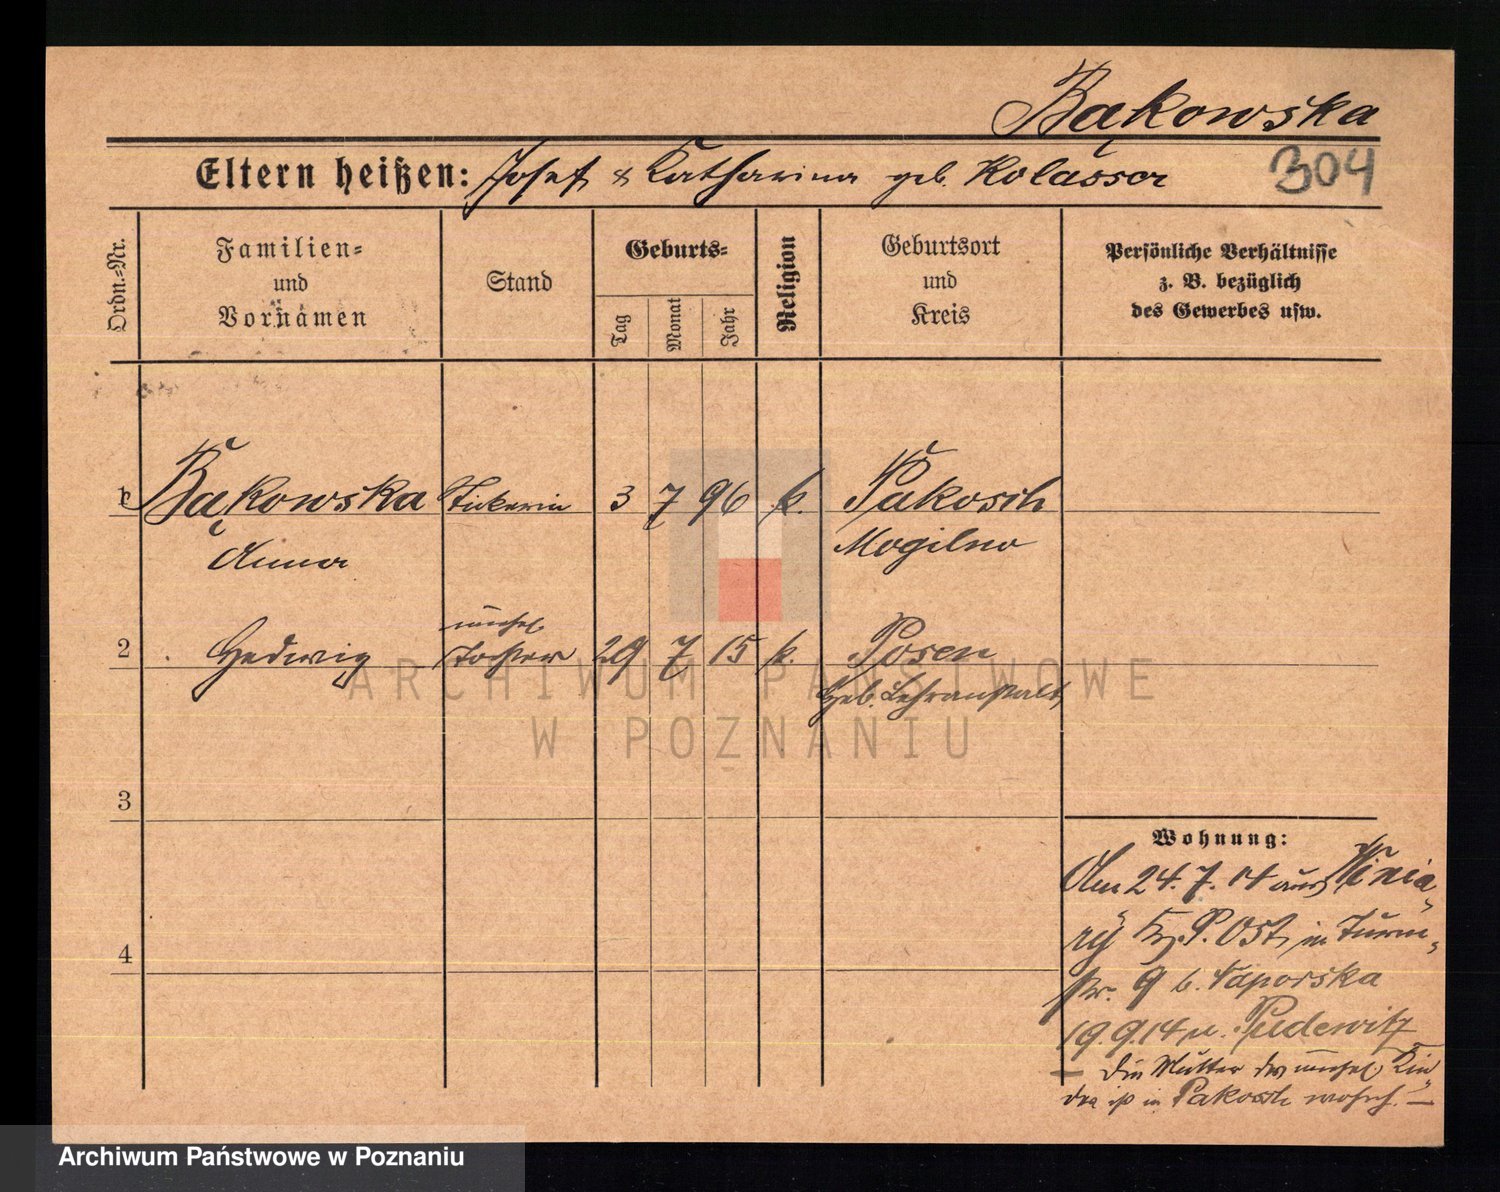 Bąkowska
Eltern heißen: Josef & Katharina geb. Kolassa
304
Ordn.-Nr.
Familien- und Vornamen
Stand
Geburts-
Tag
Monat
Jahr
Religion
Geburtsort und Kreis
Persönliche Verhältnisse z. B. bezüglich des Gewerbes usw.
1 Bąkowska 3 7 96 k. Pakosch
Anna Mogilno
unehel.
2 Hedwig Tochter 29 7 15 k. Posen
Heb. Lehranstalt
3
4
Wohnung:
Am 24.7.14 aus Winia-
ry Kr. P. Ost, in Turm-
str. 9 b.
19.9.14 n. Pudewitz
— Die Mutter des unehel. Kin-
des ist in Pakosch wohnh. —
ARCHIWUM PAŃSTWOWE
W POZNANIU
Archiwum Państwowe w Poznaniu